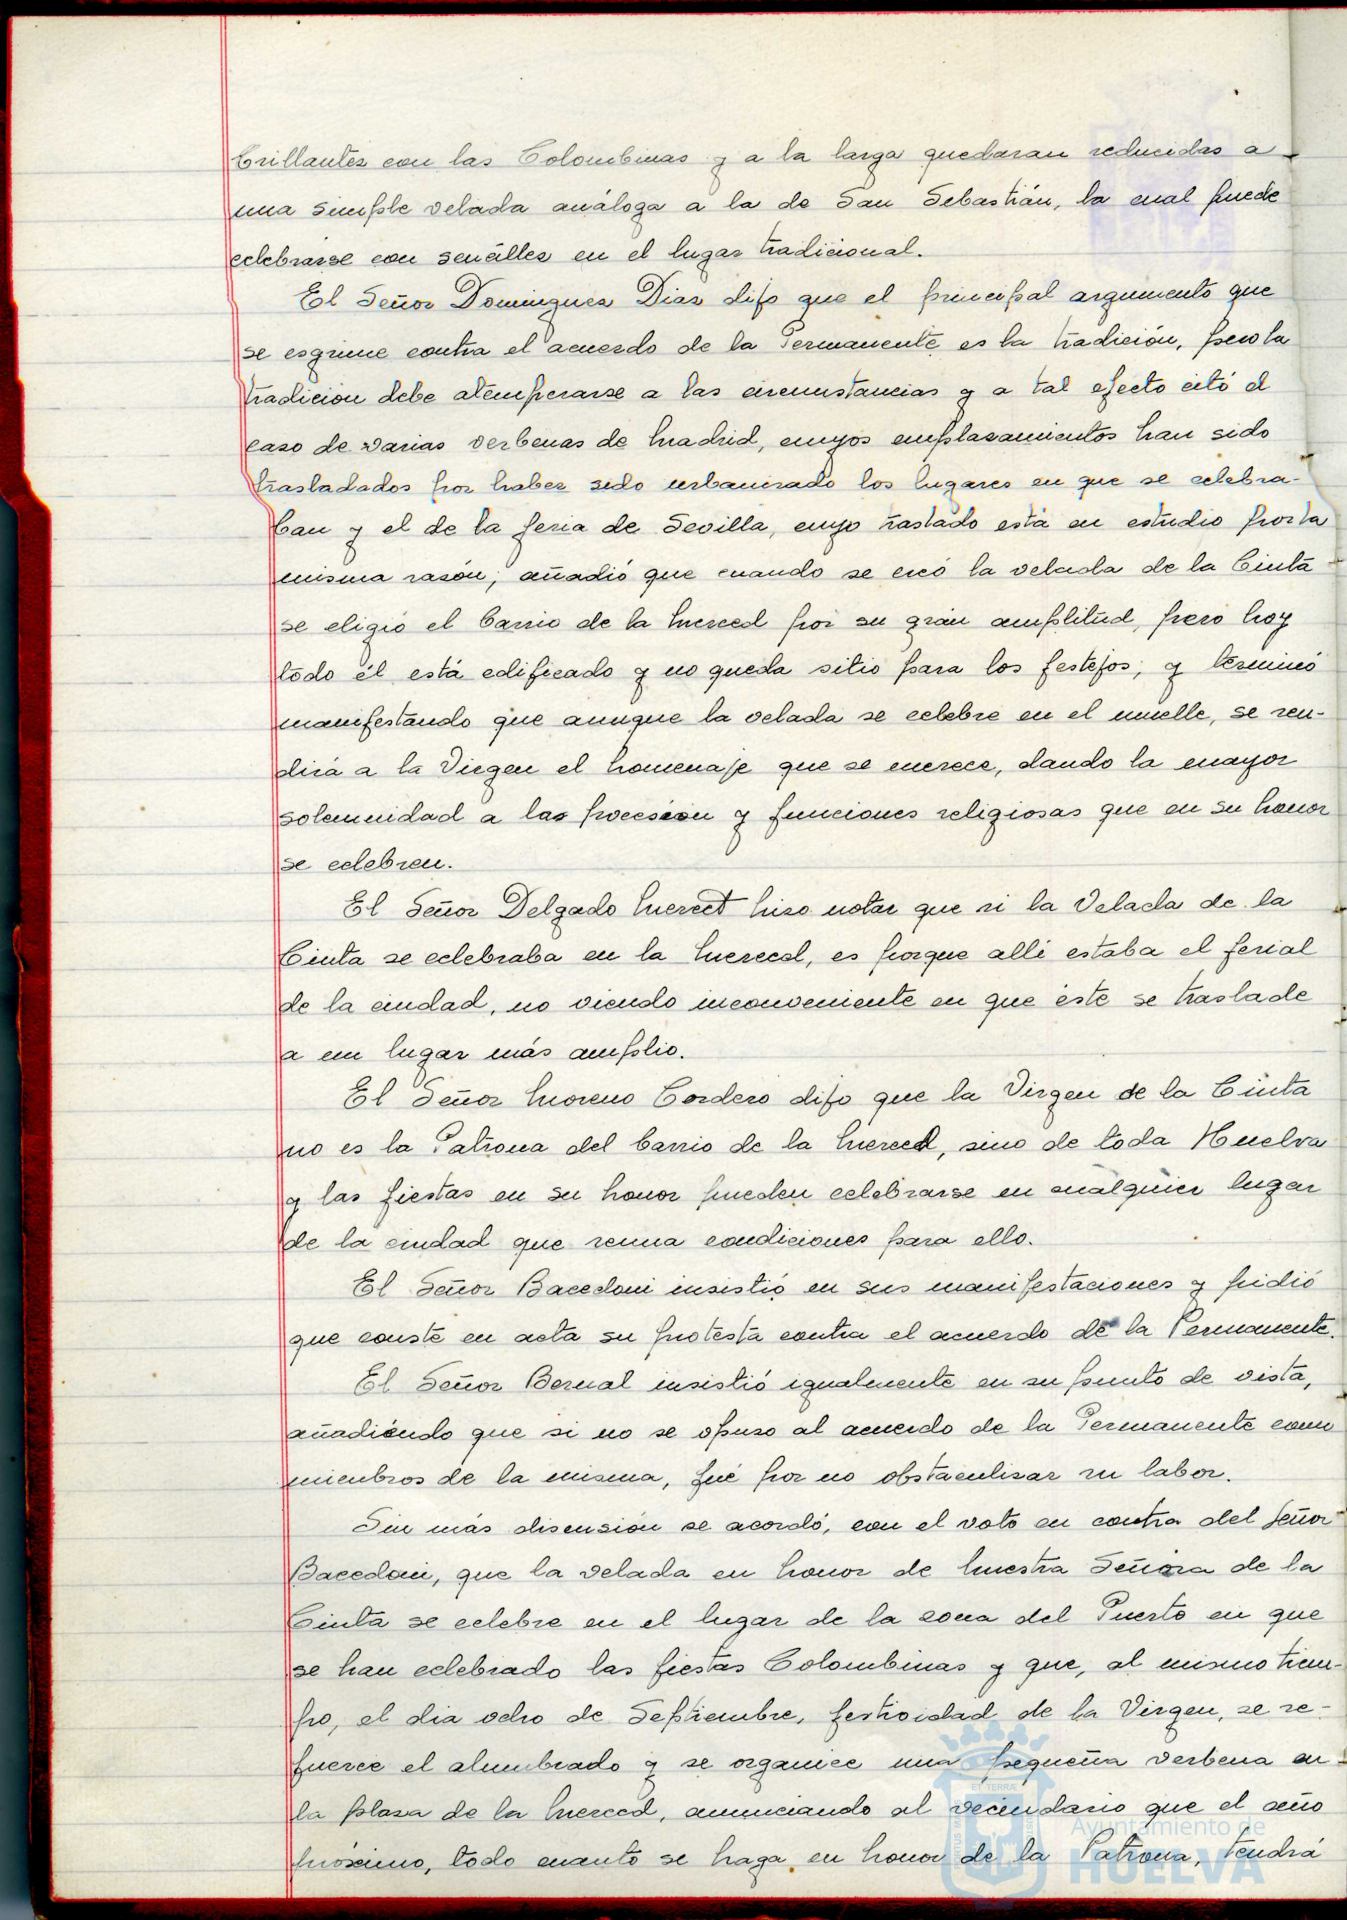 brillantes con las Colombinas y a la larga quedaran reducidas a
una simple velada análoga a la de San Sebastián, la cual puede
celebrarse con sencillez en el lugar tradicional.
El Señor Dominguez Diaz dijo que el principal argumento que
se esgrime contra el acuerdo de la Permanente es la tradición, pero la
tradición debe atemperarse a las circunstancias y a tal efecto citó el
caso de varias verbenas de Madrid, cuyos emplazamientos han sido
trasladados por haber sido urbanizado los lugares en que se celebra-
ban y el de la feria de Sevilla, cuyo traslado está en estudio por la
misma razón; añadió que cuando se creó la velada de la Cinta
se eligió el barrio de la Merced por su gran amplitud, pero hoy
todo él está edificado y no queda sitio para los festejos; y terminó
manifestando que aunque la velada se celebre en el muelle, se ren-
dirá a la Virgen el homenaje que se merece, dando la mayor
solemnidad a las procesión y funciones religiosas que en su honor
se celebren.
El Señor Delgado Merced hizo notar que si la Velada de la
Cinta se celebraba en la Merced, es porque allí estaba el ferial
de la ciudad, no viendo inconveniente en que éste se traslade
a un lugar más amplio.
El Señor Moreno Cordero dijo que la Virgen de la Cinta
no es la Patrona del barrio de la Merced, sino de toda Huelva
y las fiestas en su honor pueden celebrarse en cualquier lugar
de la ciudad que reuna condiciones para ello.
El Señor Bacedoni insistió en sus manifestaciones y pidió
que conste en acta su protesta contra el acuerdo de la Permanente.
El Señor Bernal insistió igualmente en su punto de vista,
añadiendo que si no se opuso al acuerdo de la Permanente como
miembros de la misma, fué por no obstaculizar su labor.
Sin más discusión se acordó, con el voto en contra del Señor
Bacedoni, que la velada en honor de Nuestra Señora de la
Cinta se celebre en el lugar de la zona del Puerto en que
se han celebrado las fiestas Colombinas y que, al mismo tiem-
po, el dia ocho de Septiembre, festividad de la Virgen, se re-
fuerce el alumbrado y se organice una pequeña verbena en
la plaza de la Merced, anunciando al vecindario que el año
próximo, todo cuanto se haga en honor de la Patrona, tendrá
Ayuntamiento de
HUELVA